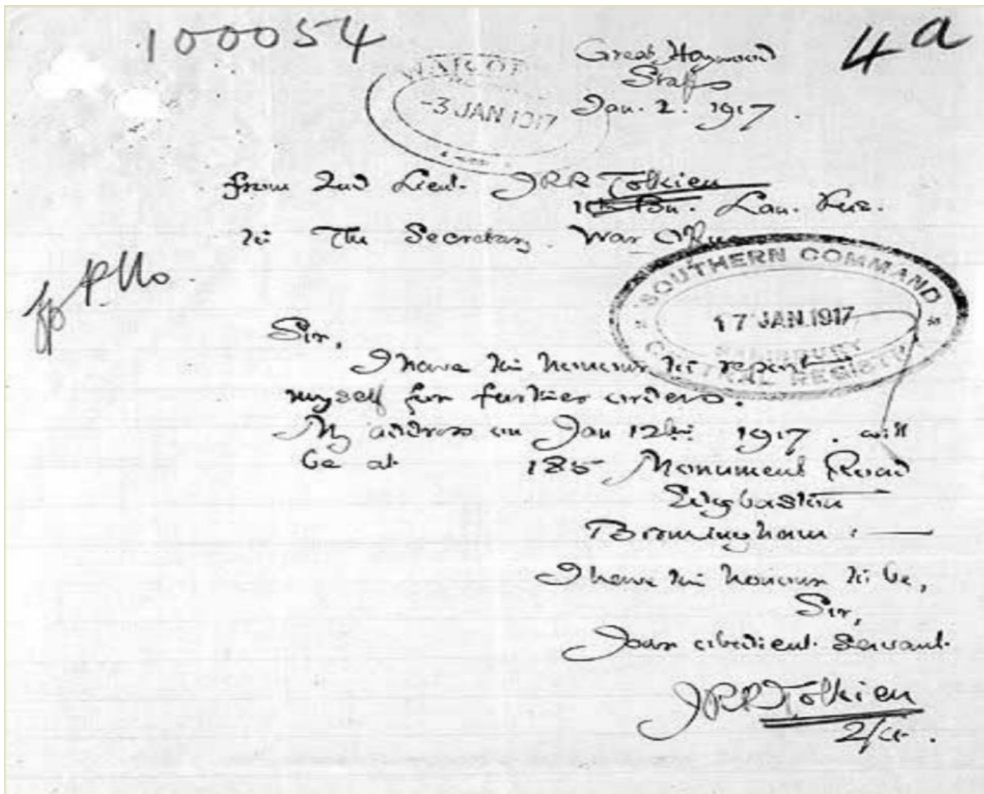 100054
4a
Great Haywood
Staffs
Jan. 2. 1917.
WAR OFFICE
-3 JAN 1917
from 2nd Lieut. JRR Tolkien
11th Bn. Lan. Fus.
to The Secretary. War Office
SOUTHERN COMMAND
17 JAN.1917
SALISBURY
CENTRAL REGISTRY
Sir,
I have the honour to report
myself for further orders.
My address on Jan 12th 1917. will
be at 185 Monument Road
Edgbaston
Birmingham :—
I have the honour to be,
Sir,
Your obedient servant.
JRRTolkien
2/Lt.